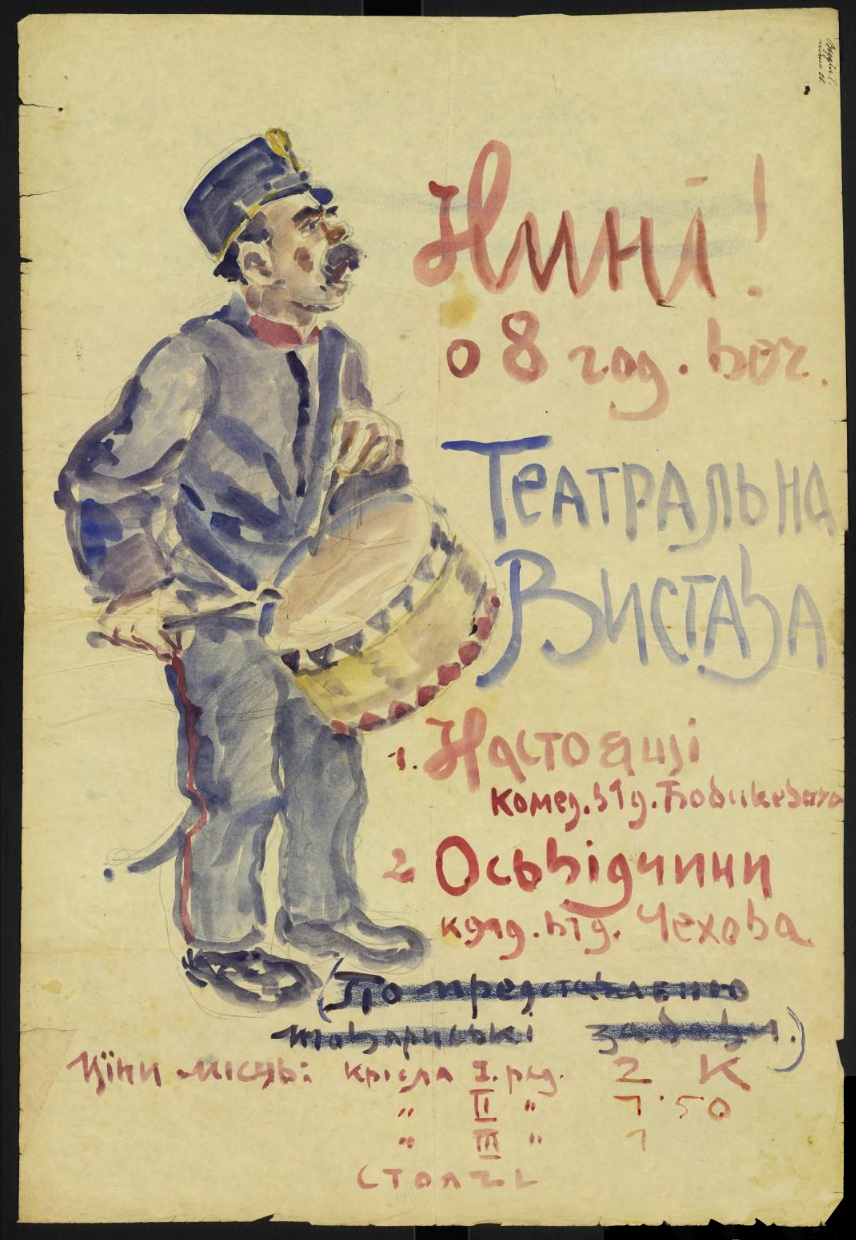 Нині!
о 8 год. веч.
Театральна
Вистава
1. Настоящі
комед. від. Бобикевича
2 Осьвідчини
ком. від. Чехова
(По представленю
товариські забави.)
Ціни місць: крісла I. ряд. 2 К
" II " 1·50
" III " 1